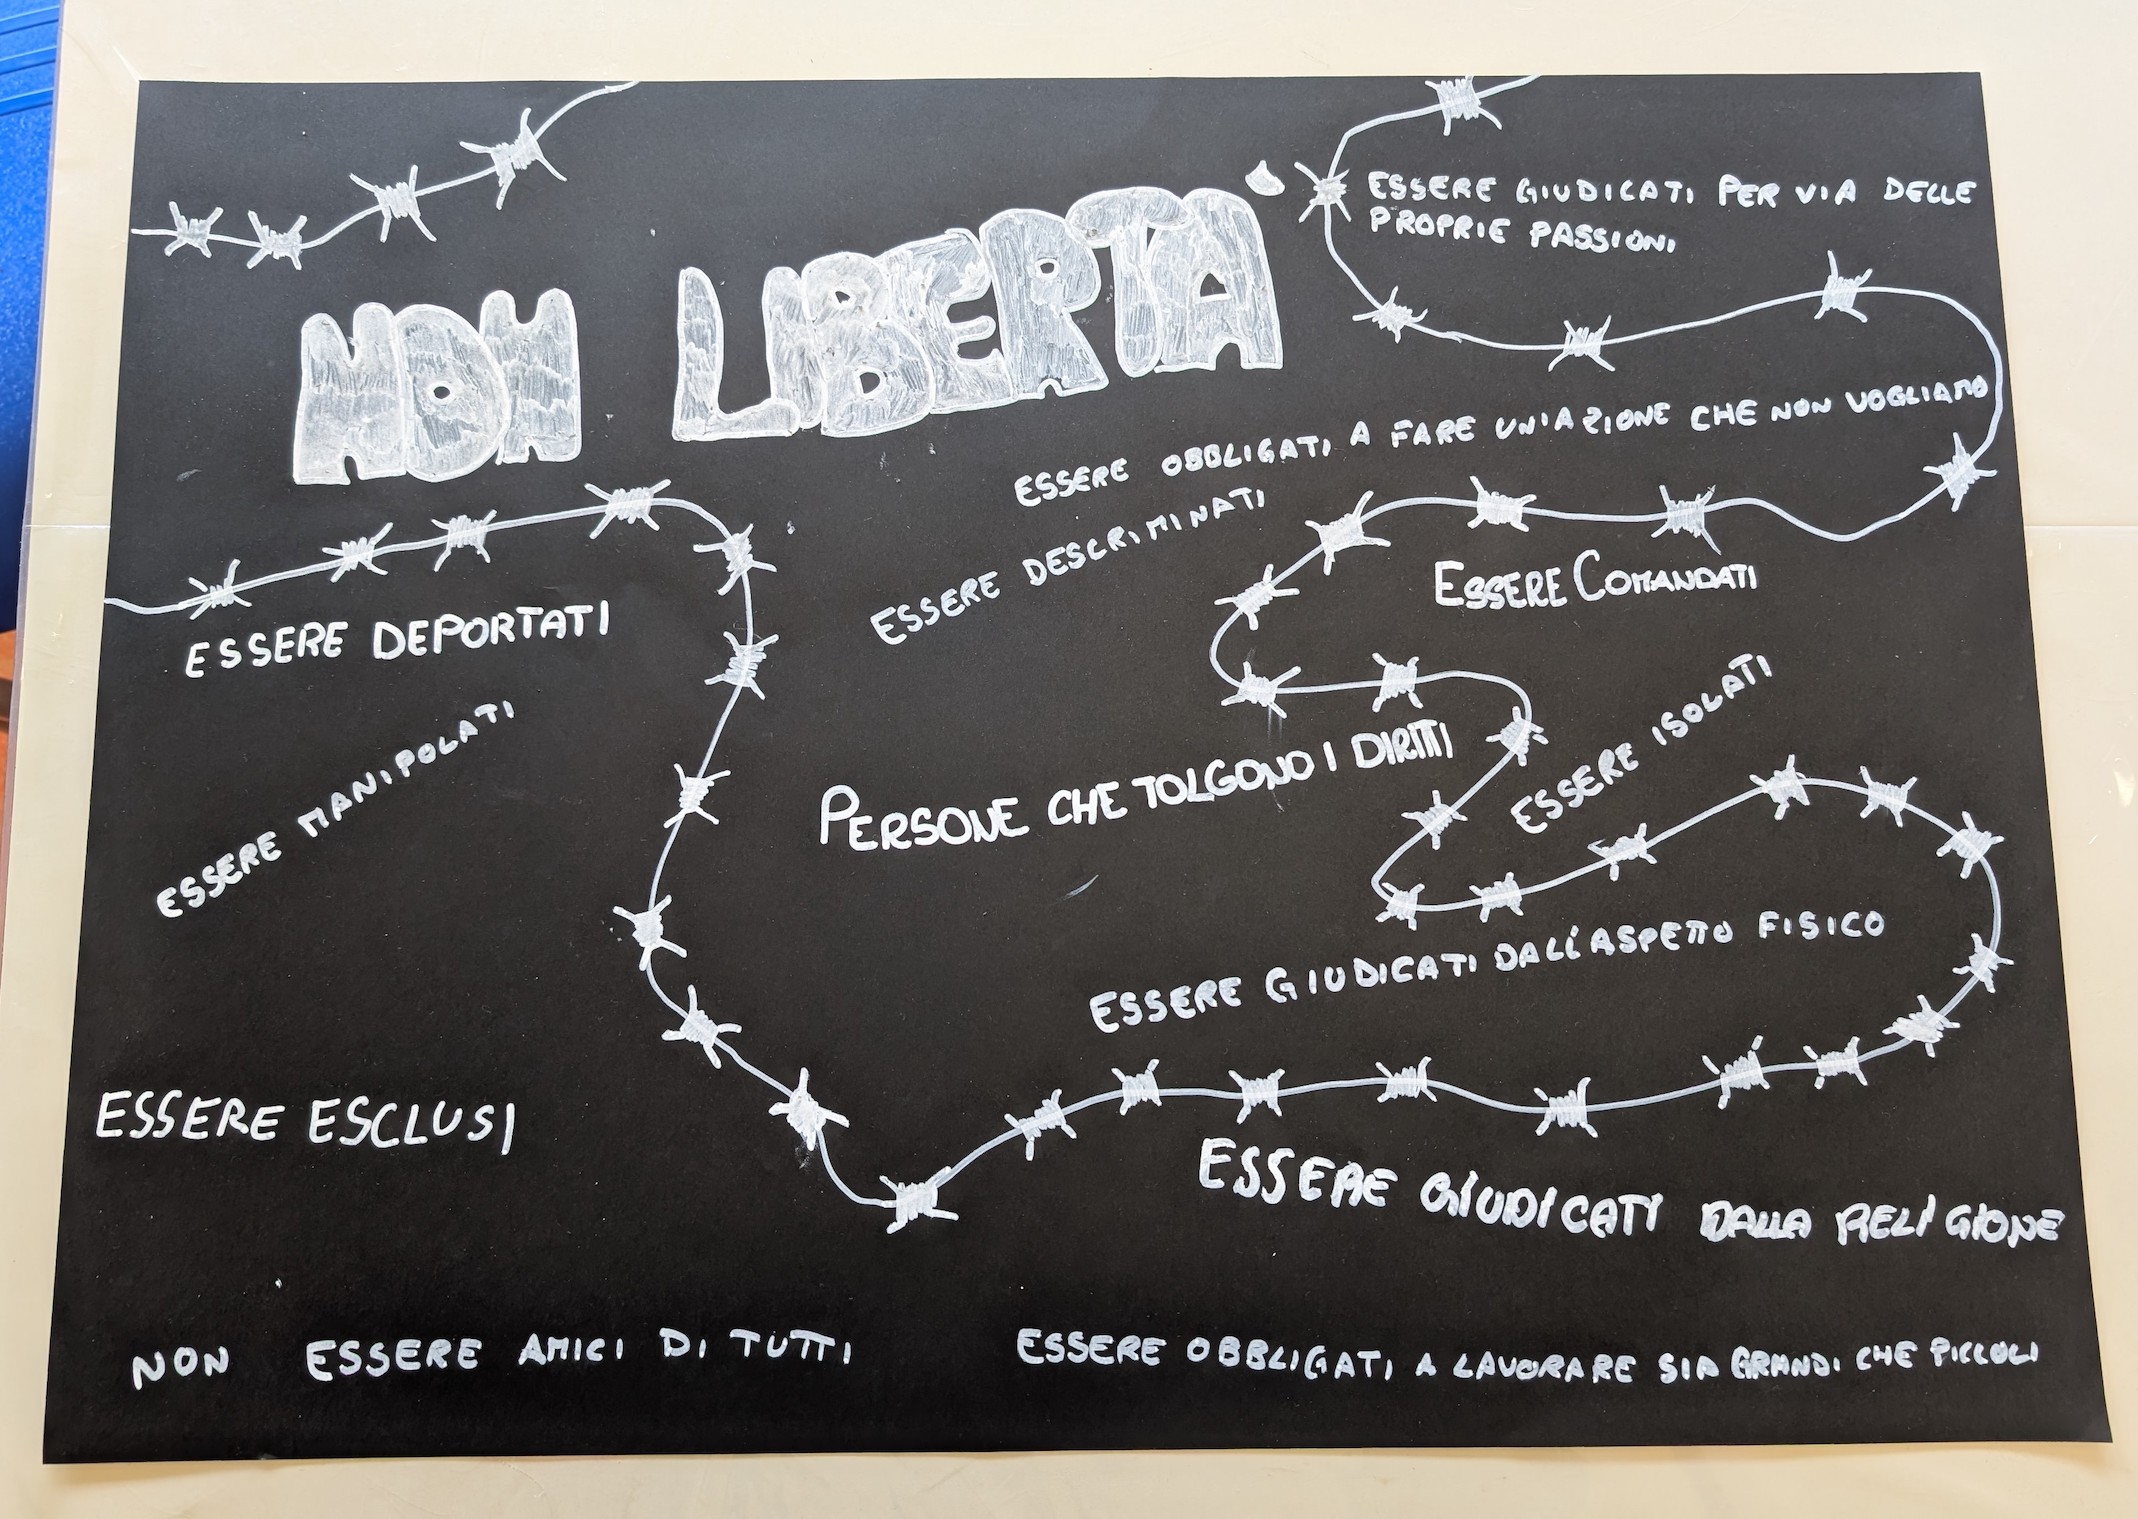 NON LIBERTA'
ESSERE GIUDICATI PER VIA DELLE
PROPRIE PASSIONI
ESSERE OBBLIGATI A FARE UN'AZIONE CHE NON VOGLIAMO
ESSERE DESCRIMINATI
ESSERE COMANDATI
ESSERE DEPORTATI
ESSERE MANIPOLATI
PERSONE CHE TOLGONO I DIRITTI
ESSERE ISOLATI
ESSERE GIUDICATI DALL'ASPETTO FISICO
ESSERE ESCLUSI
ESSERE GIUDICATI DALLA RELIGIONE
NON ESSERE AMICI DI TUTTI
ESSERE OBBLIGATI A LAVORARE SIA GRANDI CHE PICCOLI